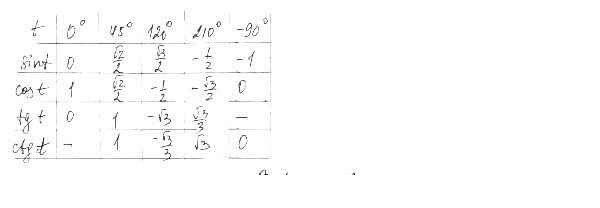 t 0° 45° 120° 210° -90°
sint 0 √2/2 √3/2 -1/2 -1
cost 1 √2/2 -1/2 -√3/2 0
tg t 0 1 -√3 √3/3 —
ctg t - 1 -√3/3 √3 0